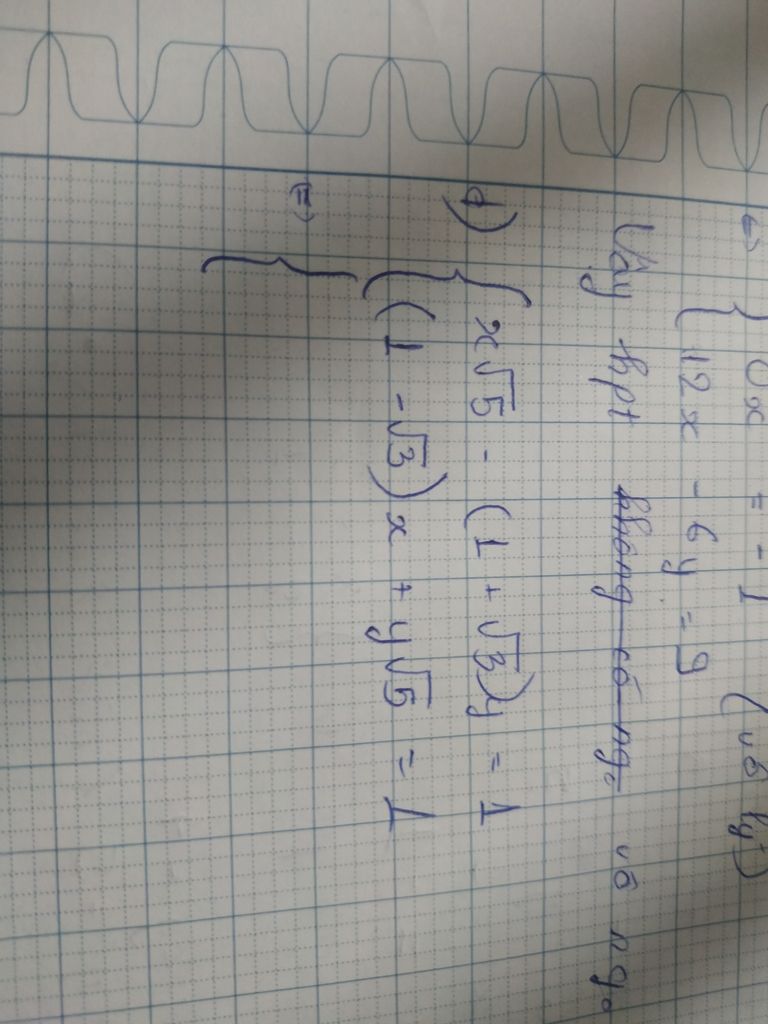 ⇔ { 0x = -1 (vô lý)
12x - 6y = 9
Vậy hpt không có ng. vô ng.
d) { x√5 - (1 + √3)y = 1
(1 - √3)x + y√5 = 1
(=) {